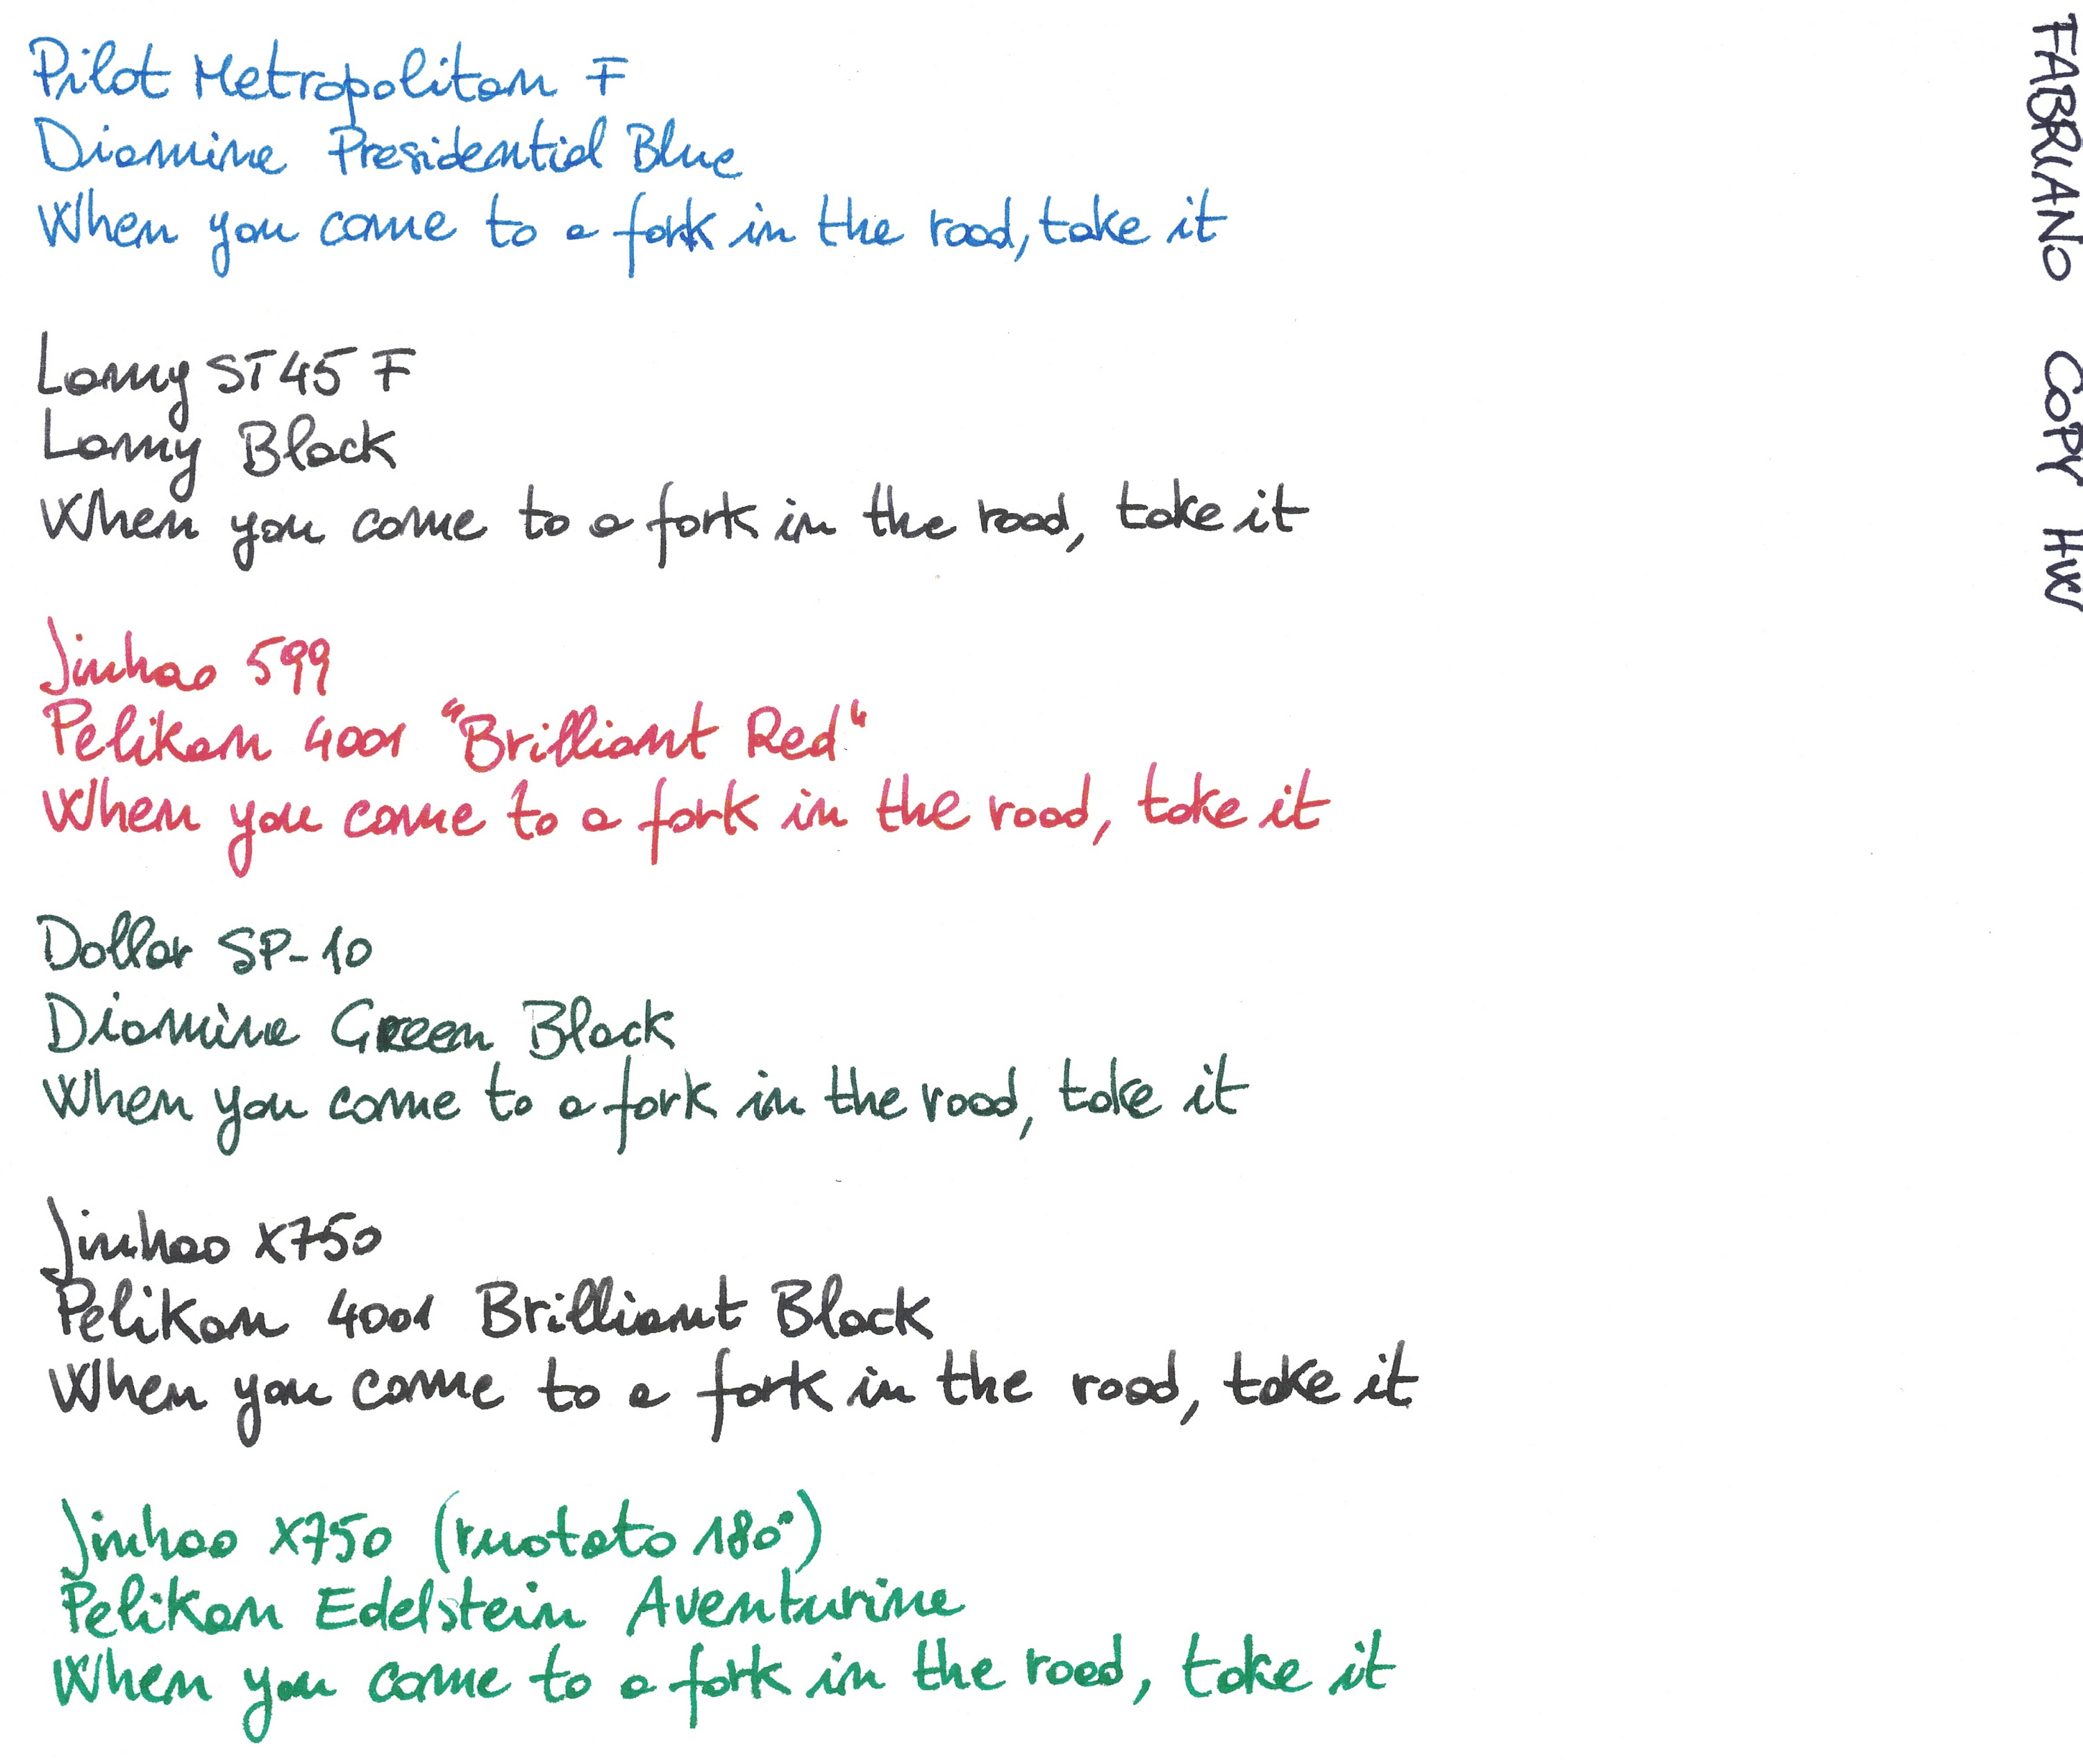 Pilot Metropolitan F
Diamine Presidential Blue
When you come to a fork in the road, take it
Lamy ST45 F
Lamy Black
When you come to a fork in the road, take it
Jinhao 599
Pelikan 4001 "Brilliant Red"
When you come to a fork in the road, take it
Dollar SP-10
Diamine Green Black
When you come to a fork in the road, take it
Jinhao X750
Pelikan 4001 Brilliant Black
When you come to a fork in the road, take it
Jinhao X750 (ruotato 180°)
Pelikan Edelstein Aventurine
When you come to a fork in the road, take it
FABRIANO COPY HW